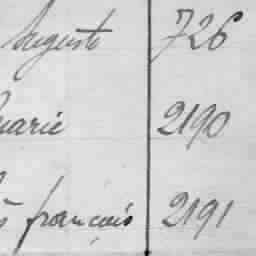 Auguste 726
Marie 2190
françois 2191